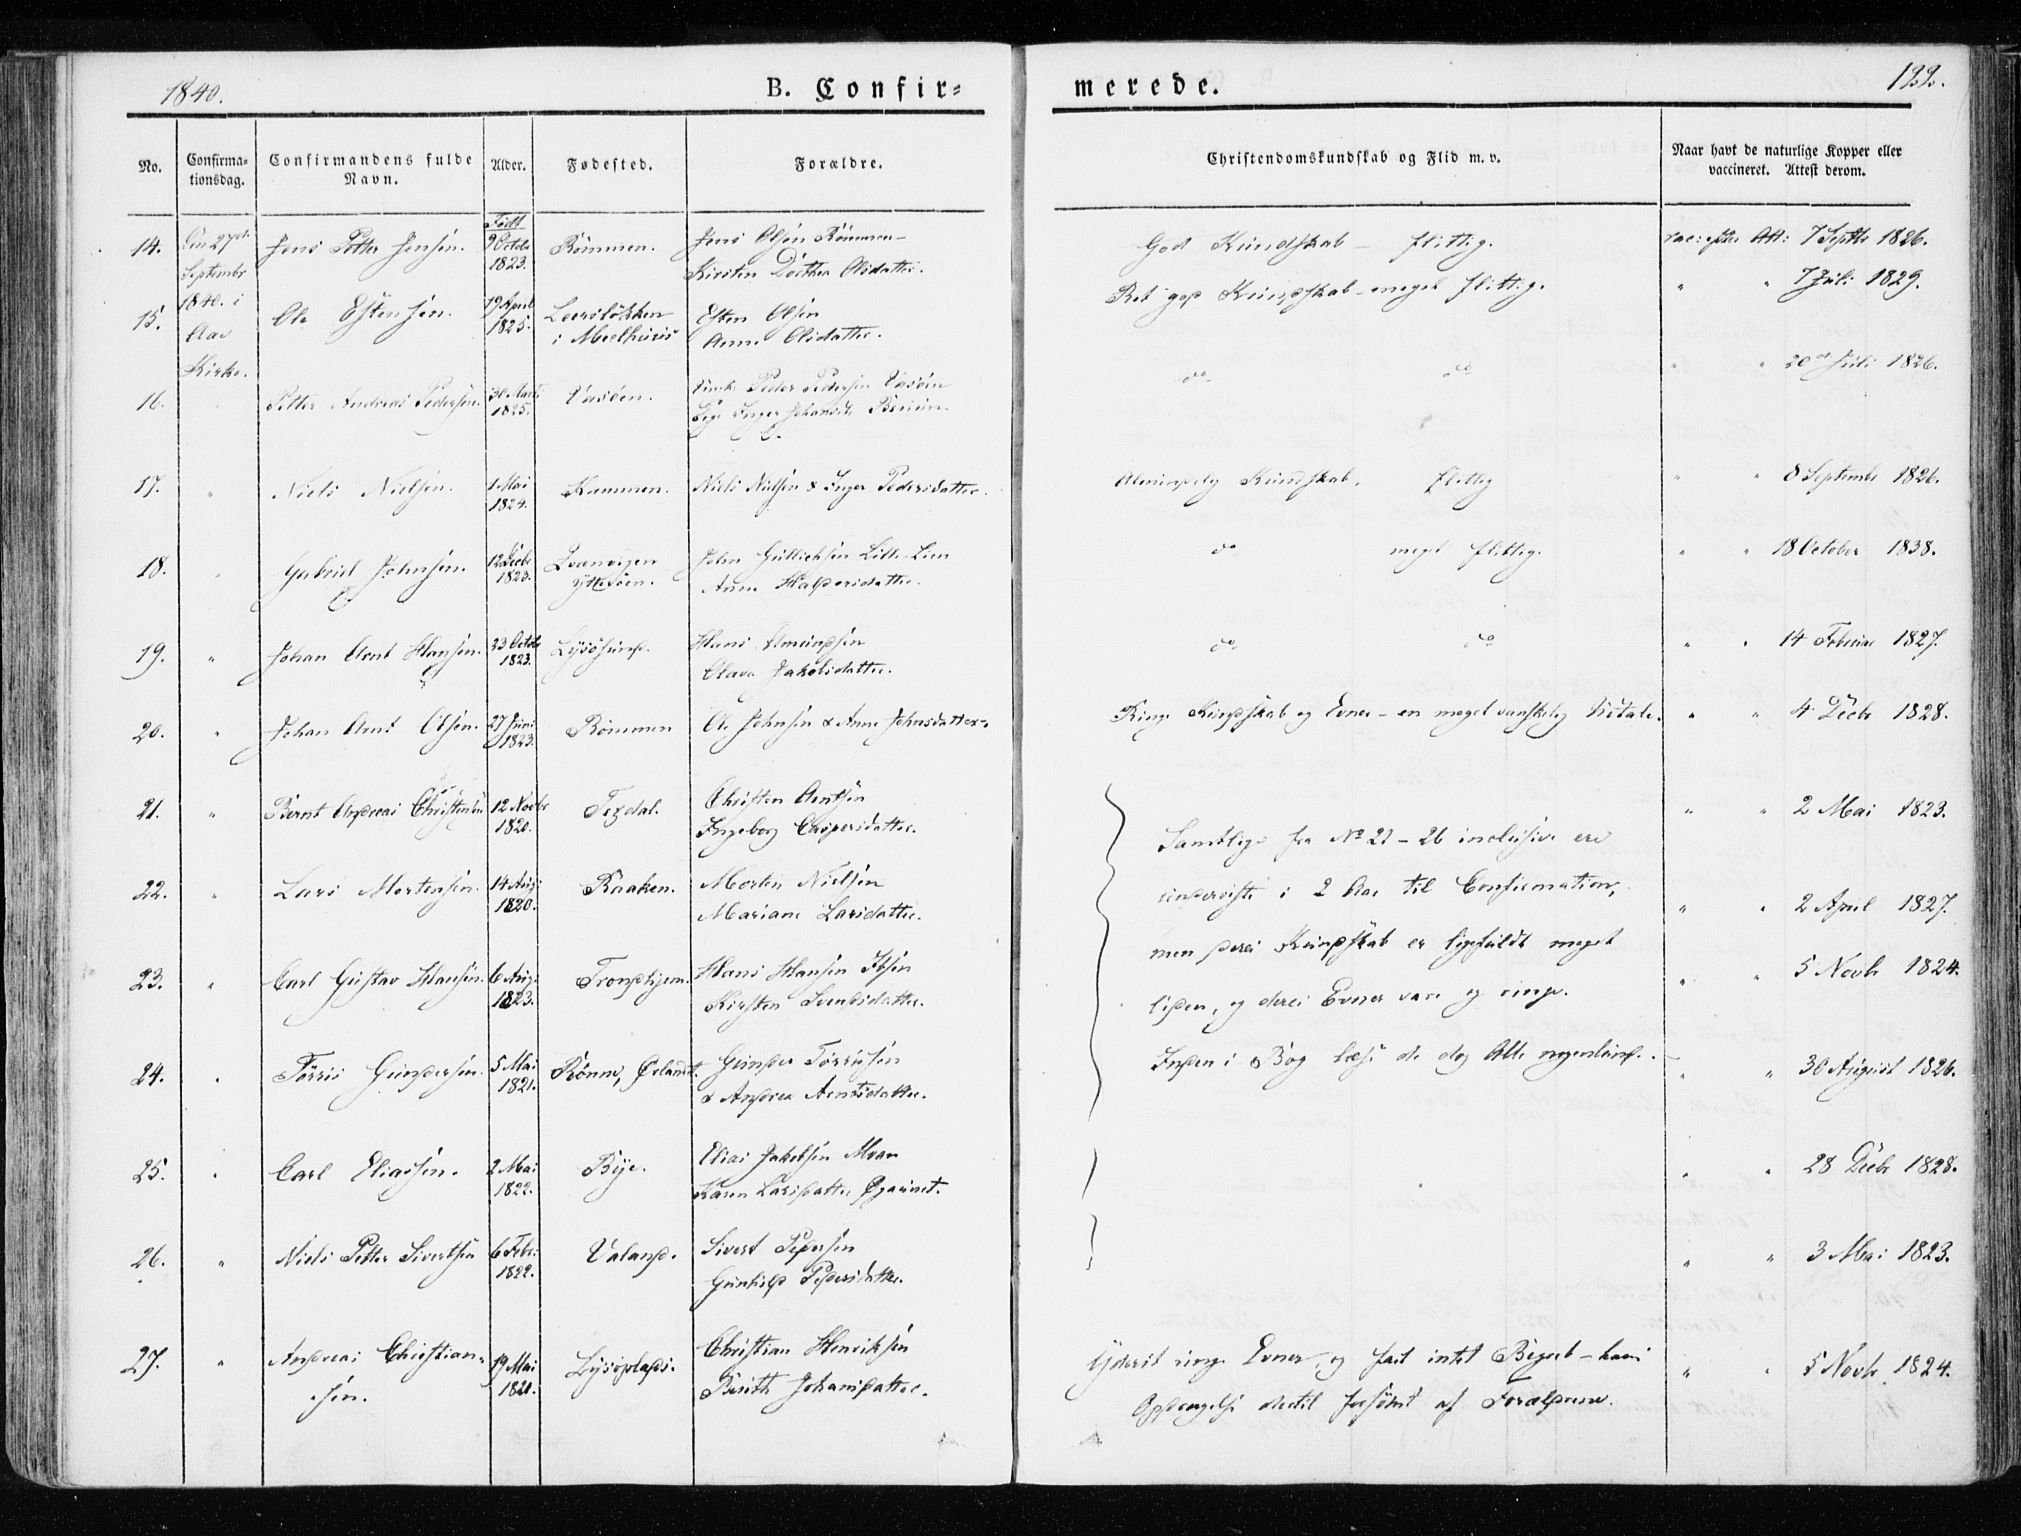 1840.
B. Confir=
merede.
122.
No.
Confirma=
tionsdag.
Confirmandens fulde
Navn.
Alder.
Fødested.
Forældre.
Christendomskundskab og Flid m. v.
Naar havt de naturlige Kopper eller
vaccineret. Attest derom.
Født
14. Den 27de Jens Petter Jensen. 9 Octobr Rømmen. Jens Olsen Rømmen
Septembr 1823. Kirsten Dorthea Olsdatter.
God Kundskab - flittig. vac: efter Att: 7 Septbr 1826.
15. 1840. i Ole Estensen. 19 April i Meelhuus Esten Olsen
Aae 1825. Anne Olsdatter.
Ret god Kundskab - meget flittig. " " 7 Juli 1829.
Kirke.
16. Petter Andreas Pedersen. 30 Marts 1825. Vasøen. Peder Pedersen Vasøen
Pige Inger
do do " " 20de Juli 1826.
17. " Niels Nielsen. 1 Mai Kammen. Niels Nielsen & Inger Pedersdatter.
1824.
Almindelig Kundskab. flittig " " 8 Septembr 1826.
18. " Gabriel Johnsen. 12 Decbr Qvænvigen John Gullichsen Litle-Lien
1823. ytterøen. Anne Halvorsdatter.
do meget flittig. " " 18 October 1838.
19. " Johan Arnt Hansen. 23 Octobr Lysøsund. Hans Amundsen
1823. Olava Jakobsdatter.
do do " " 14 Februar 1827.
20. " Johan Arnt Olsen. 27 Juni Rømmen Ole Johnsen & Anne Johnsdatter.
1823.
Ringe Kundskab og Evner - en meget vanskelig Udtale. " " 4 Decbr 1828.
21. " Bernt Andreas Christensen 12 Novbr Texdal. Christen Arntsen
1820. Ingeborg Caspersdatter.
" " 2 Mai 1823.
Samtlige fra No 21 - 26 inclusive ere
22. " Lars Mortensen. 14 Aug: Kraaken. Morten Nielsen
1820. Mariane Larsdatter.
underviste i 2 Aar til Confirmation, " " 2 April 1827.
men deres Kundskab er ligefuldt meget
23. " Carl Gustav Hansen. 6 Aug: Trondhjem. Hans Hansen Ibsen
1823. Kirsten Svendsdatter.
" " 5 Novbr 1824.
liden, og deres Evner vare og ringe.
24. " Tørris Gundersen. 5 Mai Rønne, Ørlandt. Gunder Tørrisen
1821. & Andrea Arntsdatter.
Inden i Bog læse de dog Alle nogenlunde. " " 30 August 1826.
25. " Carl Eliassen. 2 Mai Bye. Elias Jakobsen Moan
1822. Karen Larsdatter
" " 28 Decbr 1828.
26. " Niels Petter Sivertsen 6 Febr: Valand. Sivert Pedersen
1822. Gunhild Pedersdatter.
" " 3 Mai 1823.
27. " Andreas Christian- 19 Mai Lysøplads. Christian Henriksen
sen. 1821. Birith Johansdatter.
Yderst ringe Evner, og fast intet Begreb - hans " " 5 Novbr 1824.
Opdragelse dertil forsømt af Forældrene.